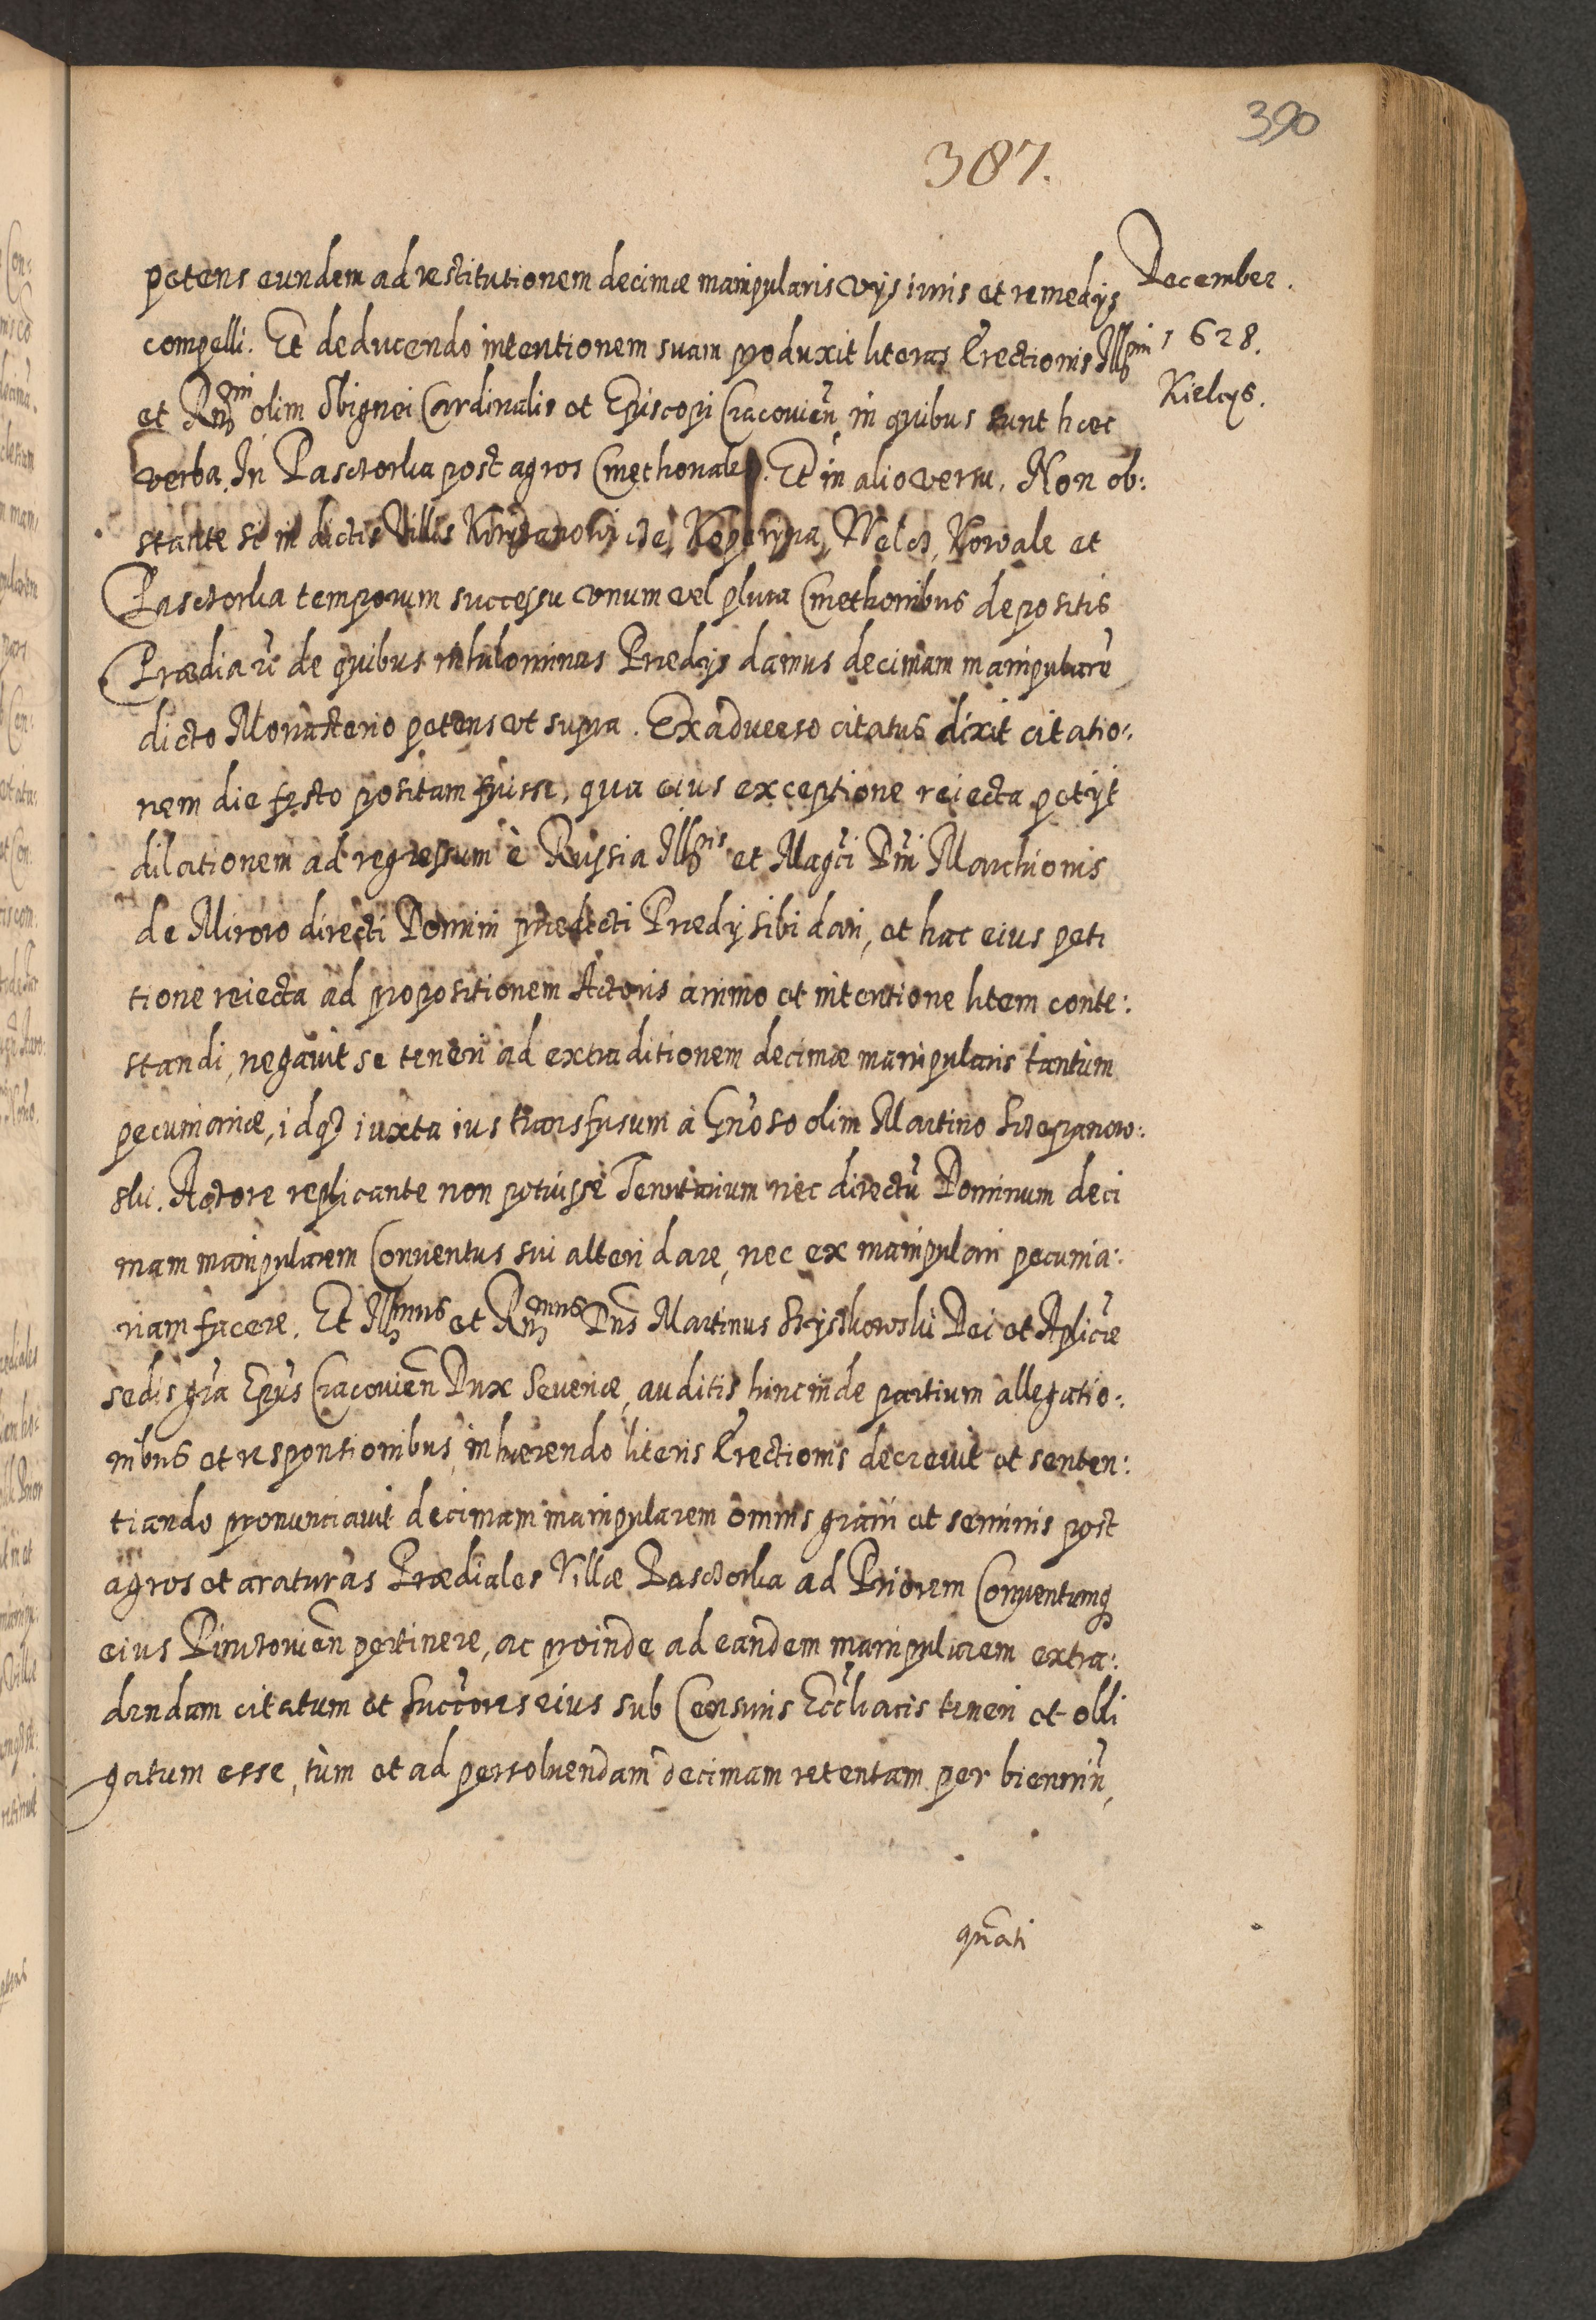 390
387.
December.
1628.
Kielcys.
petens eundem ad restitutionem decimæ manipularis vijs iuris et remedijs
compelli. Et deducendo intentionem suam produxit literas Erectionis Illmi
et Rndmi olim Sbignei Cardinalis et Episcopi Cracovień in quibus sunt hæc
verba. In Pasctorka post agros Cmethonales. Et in alio versu. Non ob:
stante si in dictis Villis Koperina, Welcz, Kowale et
Pasctorka temporum successu vnum vel plura Cmethonibus depositis
Prædia de quibus nihilominus Prædijs damus decimam manipularē
dicto Monasterio petens vt supra. Ex adverso citatus dixit citatio:
nem die festo positam fuisse, qua eius exceptione reiecta petijt
dilationem ad regressum è Russia Illris et Magci Dni Marchionis
de Mirow directi Domini prædicti Prædij sibi dari, et hac eius peti
tione reiecta ad propositionem Actoris animo et intentione litem conte:
standi, negavit se teneri ad extraditionem decimæ manipularis tantùm
pecuniariæ, idq3 iuxta ius transfusum à Gnoso olim Martino Sczepanow:
ski. Actore replicante non potuisse Tenutarium nec directū Dominum deci
mam manipularem Conventus sui alteri dare, nec ex manipulari pecunia:
riam facere. Et Illmus et Rndmus Dns Martinus Szyszkowski Dei et Aplicæ
sedis gra Epus Cracovień Dux Severiæ, auditis hincinde partium allegatio:
nibus et responsionibus, inhærendo literis Erectionis decrevit et senten:
tiando pronunciavit decimam manipularem omnis grani et seminis post
agros et araturas Prædiales Villæ Pasctorka ad Priorem Conventumq
eius Pinczovień pertinere, ac proinde ad eandem manipularem extra:
dendam citatum et Succores eius sub Censuris Ecclacis teneri et obli
gatum esse, tùm et ad persolvendam decimam retentam per bienniū,
quati